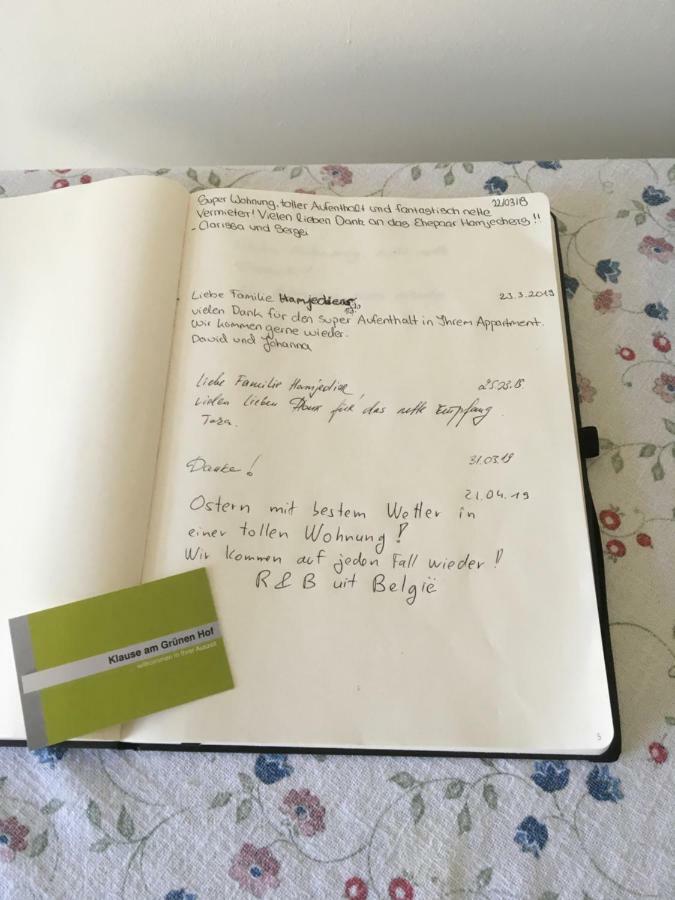 Super Wohnung, toller Aufenthalt und fantastisch nette
22/03/19
Vermieter! Vielen lieben Dank an das Ehepaar
- Clarissa und Sergej
Liebe Familie
23.3.2019
vielen Dank für den super Aufenthalt in Ihrem Appartment.
Wir kommen gerne wieder.
David und Johanna
Liebe Familie
vielen lieben Dank für das nette Empfang.
Danke!
31.03.19
21.04.19
Ostern mit bestem Wetter in
einer tollen Wohnung!
Wir kommen auf jeden Fall wieder!
R & B uit België
Klause am Grünen Hof
willkommen in Ihrer Auszeit
5